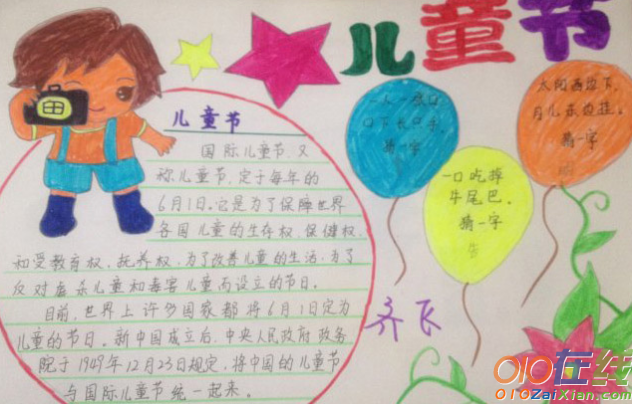 儿童节
儿童节
国际儿童节,又
称儿童节,定于每年的
6月1日。它是为了保障世界
各国儿童的生存权、保健权、
和受教育权、抚养权,为了改善儿童的生活,为了
反对虐杀儿童和毒害儿童而设立的节日。
目前,世界上许多国家都将6月1日定为
儿童的节日。新中国成立后,中央人民政府政务
院于1949年12月23日规定,将中国的儿童节
与国际儿童节统一起来。
一人一张口
口下长只手。
猜一字
一口吃掉
牛尾巴。
猜一字
告
太阳西边下,
月儿东边挂。
猜一字
明
齐飞
010在线
010ZaiXian.com